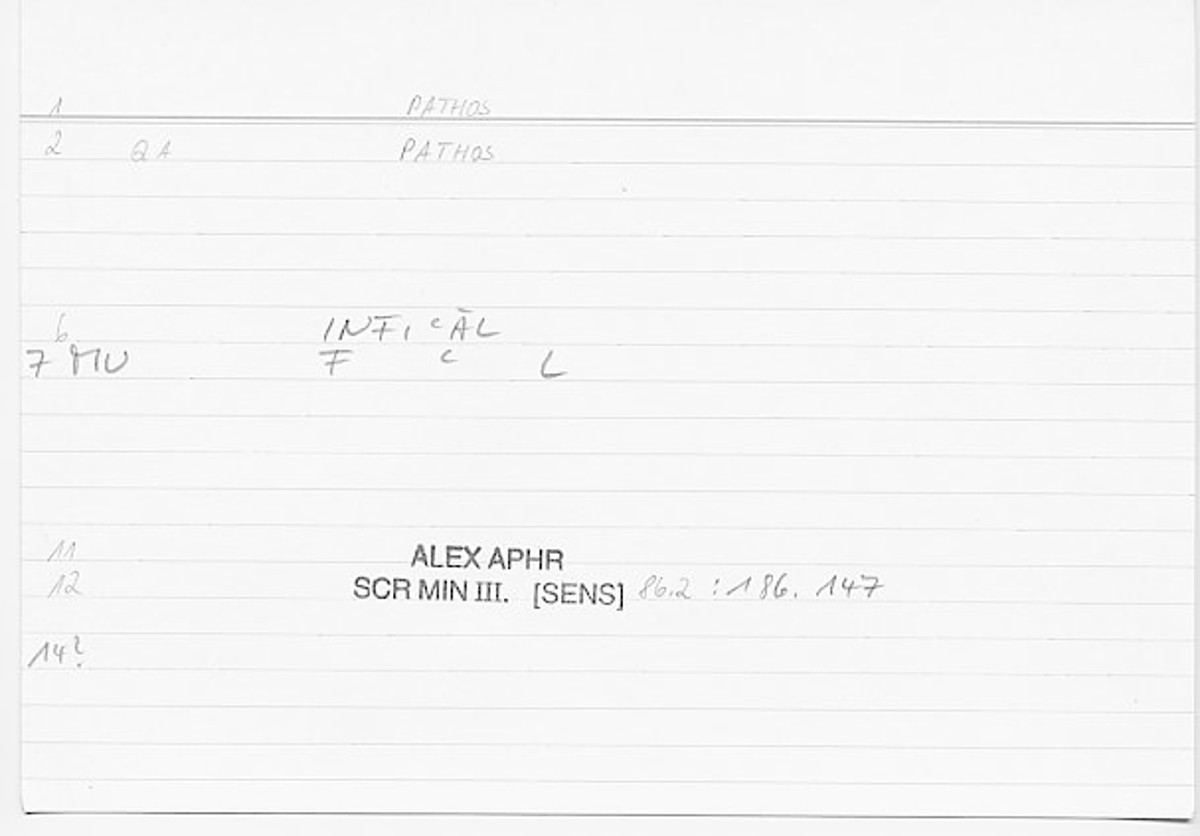 1 PATHOS
2 QA PATHOS
6 INFICĀL
7 MU F C L
11 ALEX APHR
12 SCR MIN III. [SENS] 86.2 : 186. 147
14?